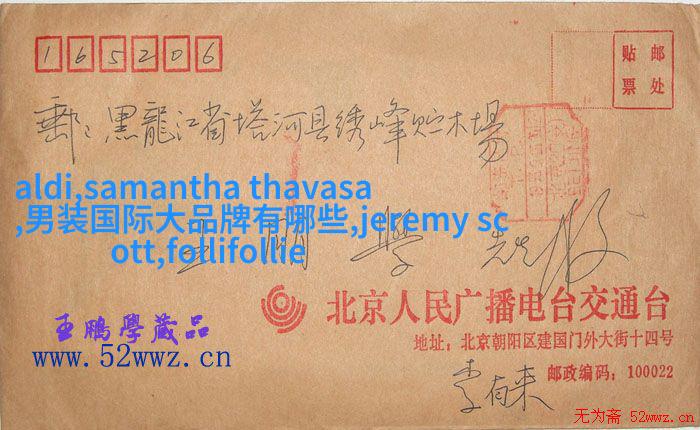 165206
贴 邮
票 处
邮：黑龍江省塔河县绣峰贮木場
aldi,samantha thavasa
,男装国际大品牌有哪些,jeremy sc
ott,follifollie
王明學 先生 收
北京人民广播电台交通台
地址：北京朝阳区建国门外大街十四号
李有来 邮政编码：100022
王鹏學藏品
www.52wwz.cn
无为斋 52wwz.cn